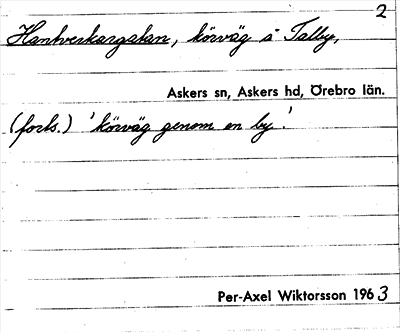 2
Hantverkargatan, körväg å Talby,
Askers sn, Askers hd, Örebro län.
(forts.) 'körväg genom en by'.
Per-Axel Wiktorsson 1963